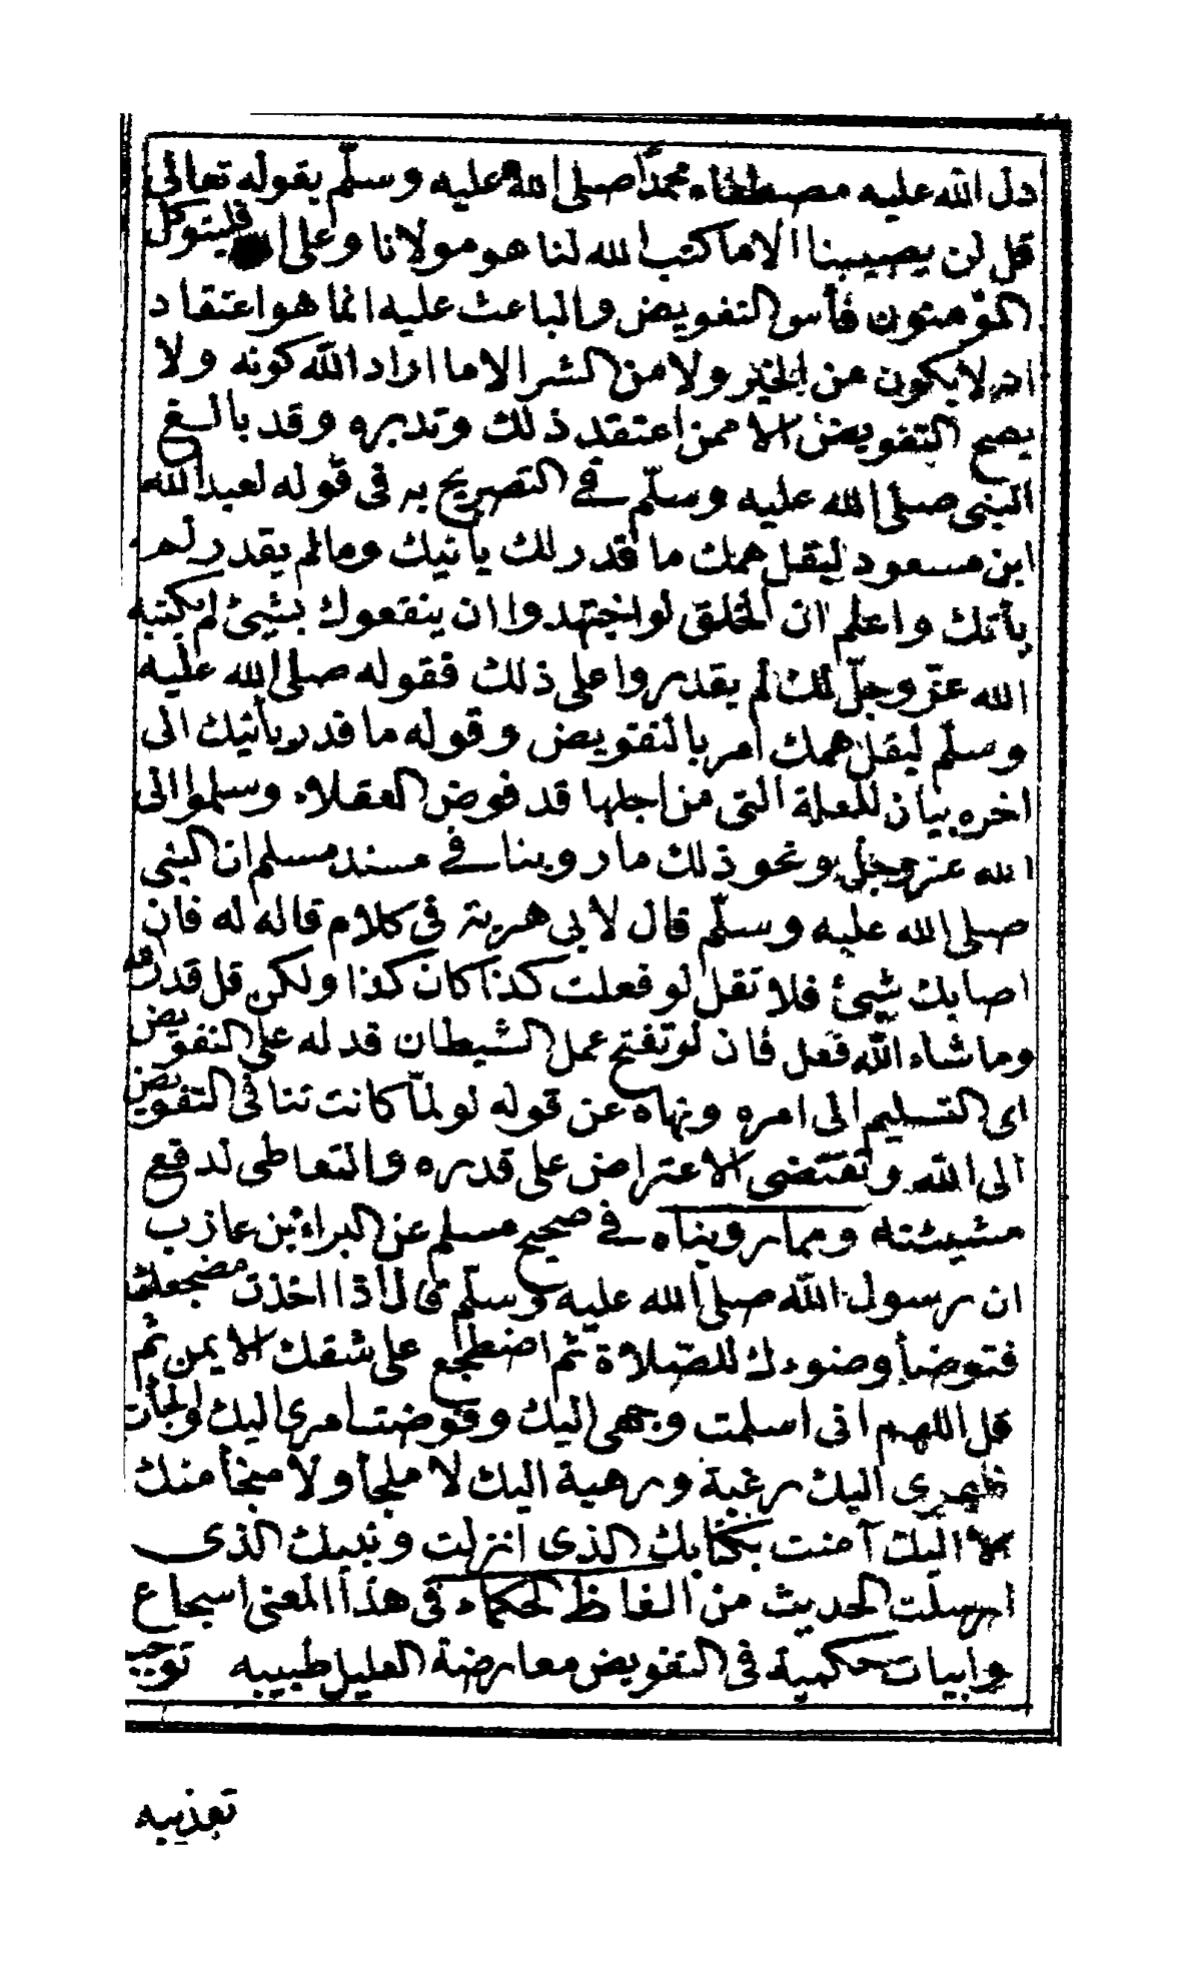 دل الله عليه مصطفاه محمدًا صلى الله عليه وسلّم بقوله تعالى
قل لن يصيبنا الا ما كتب الله لنا هو مولانا وعلى الله فليتوكل
المؤمنون فأس التفويض والباعث عليه انما هو اعتقاد
انه لا يكون من الخير ولا من الشر الا ما اراد الله كونه ولا
يصح التفويض الا ممن اعتقد ذلك وتدبره وقد بالغ
النبى صلى الله عليه وسلّم فى التصريح به فى قوله لعبد الله
ابن مسعود ليقل همك ما قدر لك يأتيك ومالم يقدر لم
يأتك واعلم ان الخلق لو اجتهدوا ان ينفعوك بشيئ لم يكتبه
الله عزّ وجلّ لك لم يقدروا على ذلك فقوله صلى الله عليه
وسلّم ليقل همك امر بالتفويض وقوله ما قدر يأتيك الى
اخره بيان للعلة التى من اجلها قد فوض العقلاء وسلموا الى
الله عز وجل ونحو ذلك ما روينا فى مسند مسلم ان النبى
صلى الله عليه وسلّم قال لابى هريرة فى كلام قاله له فان
اصابك شيئ فلا تقل لو فعلت كذا كان كذا ولكن قل قدر الله
وما شاء الله فعل فان لو تفتح عمل الشيطان قد له على التفويض
اى التسليم الى امره ونهاه عن قوله لو لمّا كانت تنافى التفويض
الى الله وتقتضى الاعتراض على قدره والتعاطى لدفع
مشيئته ومما رويناه فى صحيح مسلم عن البراء بن عازب
ان رسول الله صلى الله عليه وسلّم قال اذا اخذت مضجعك
فتوضأ وضوءك للصّلاة ثم اضطجع على شقك الايمن ثم
قل اللهم انى اسلمت وجهى اليك وفوضت امرى اليك والجأت
ظهرى اليك رغبة ورهبة اليك لا ملجأ ولا منجأ منك
الا اليك آمنت بكتابك الذى انزلت ونبيك الذى
ارسلت الحديث من الفاظ الحكماء فى هذا المعنى اسجاع
وابيات حكمية فى التفويض معارضة العليل طبيبه توجب
تعذيبه